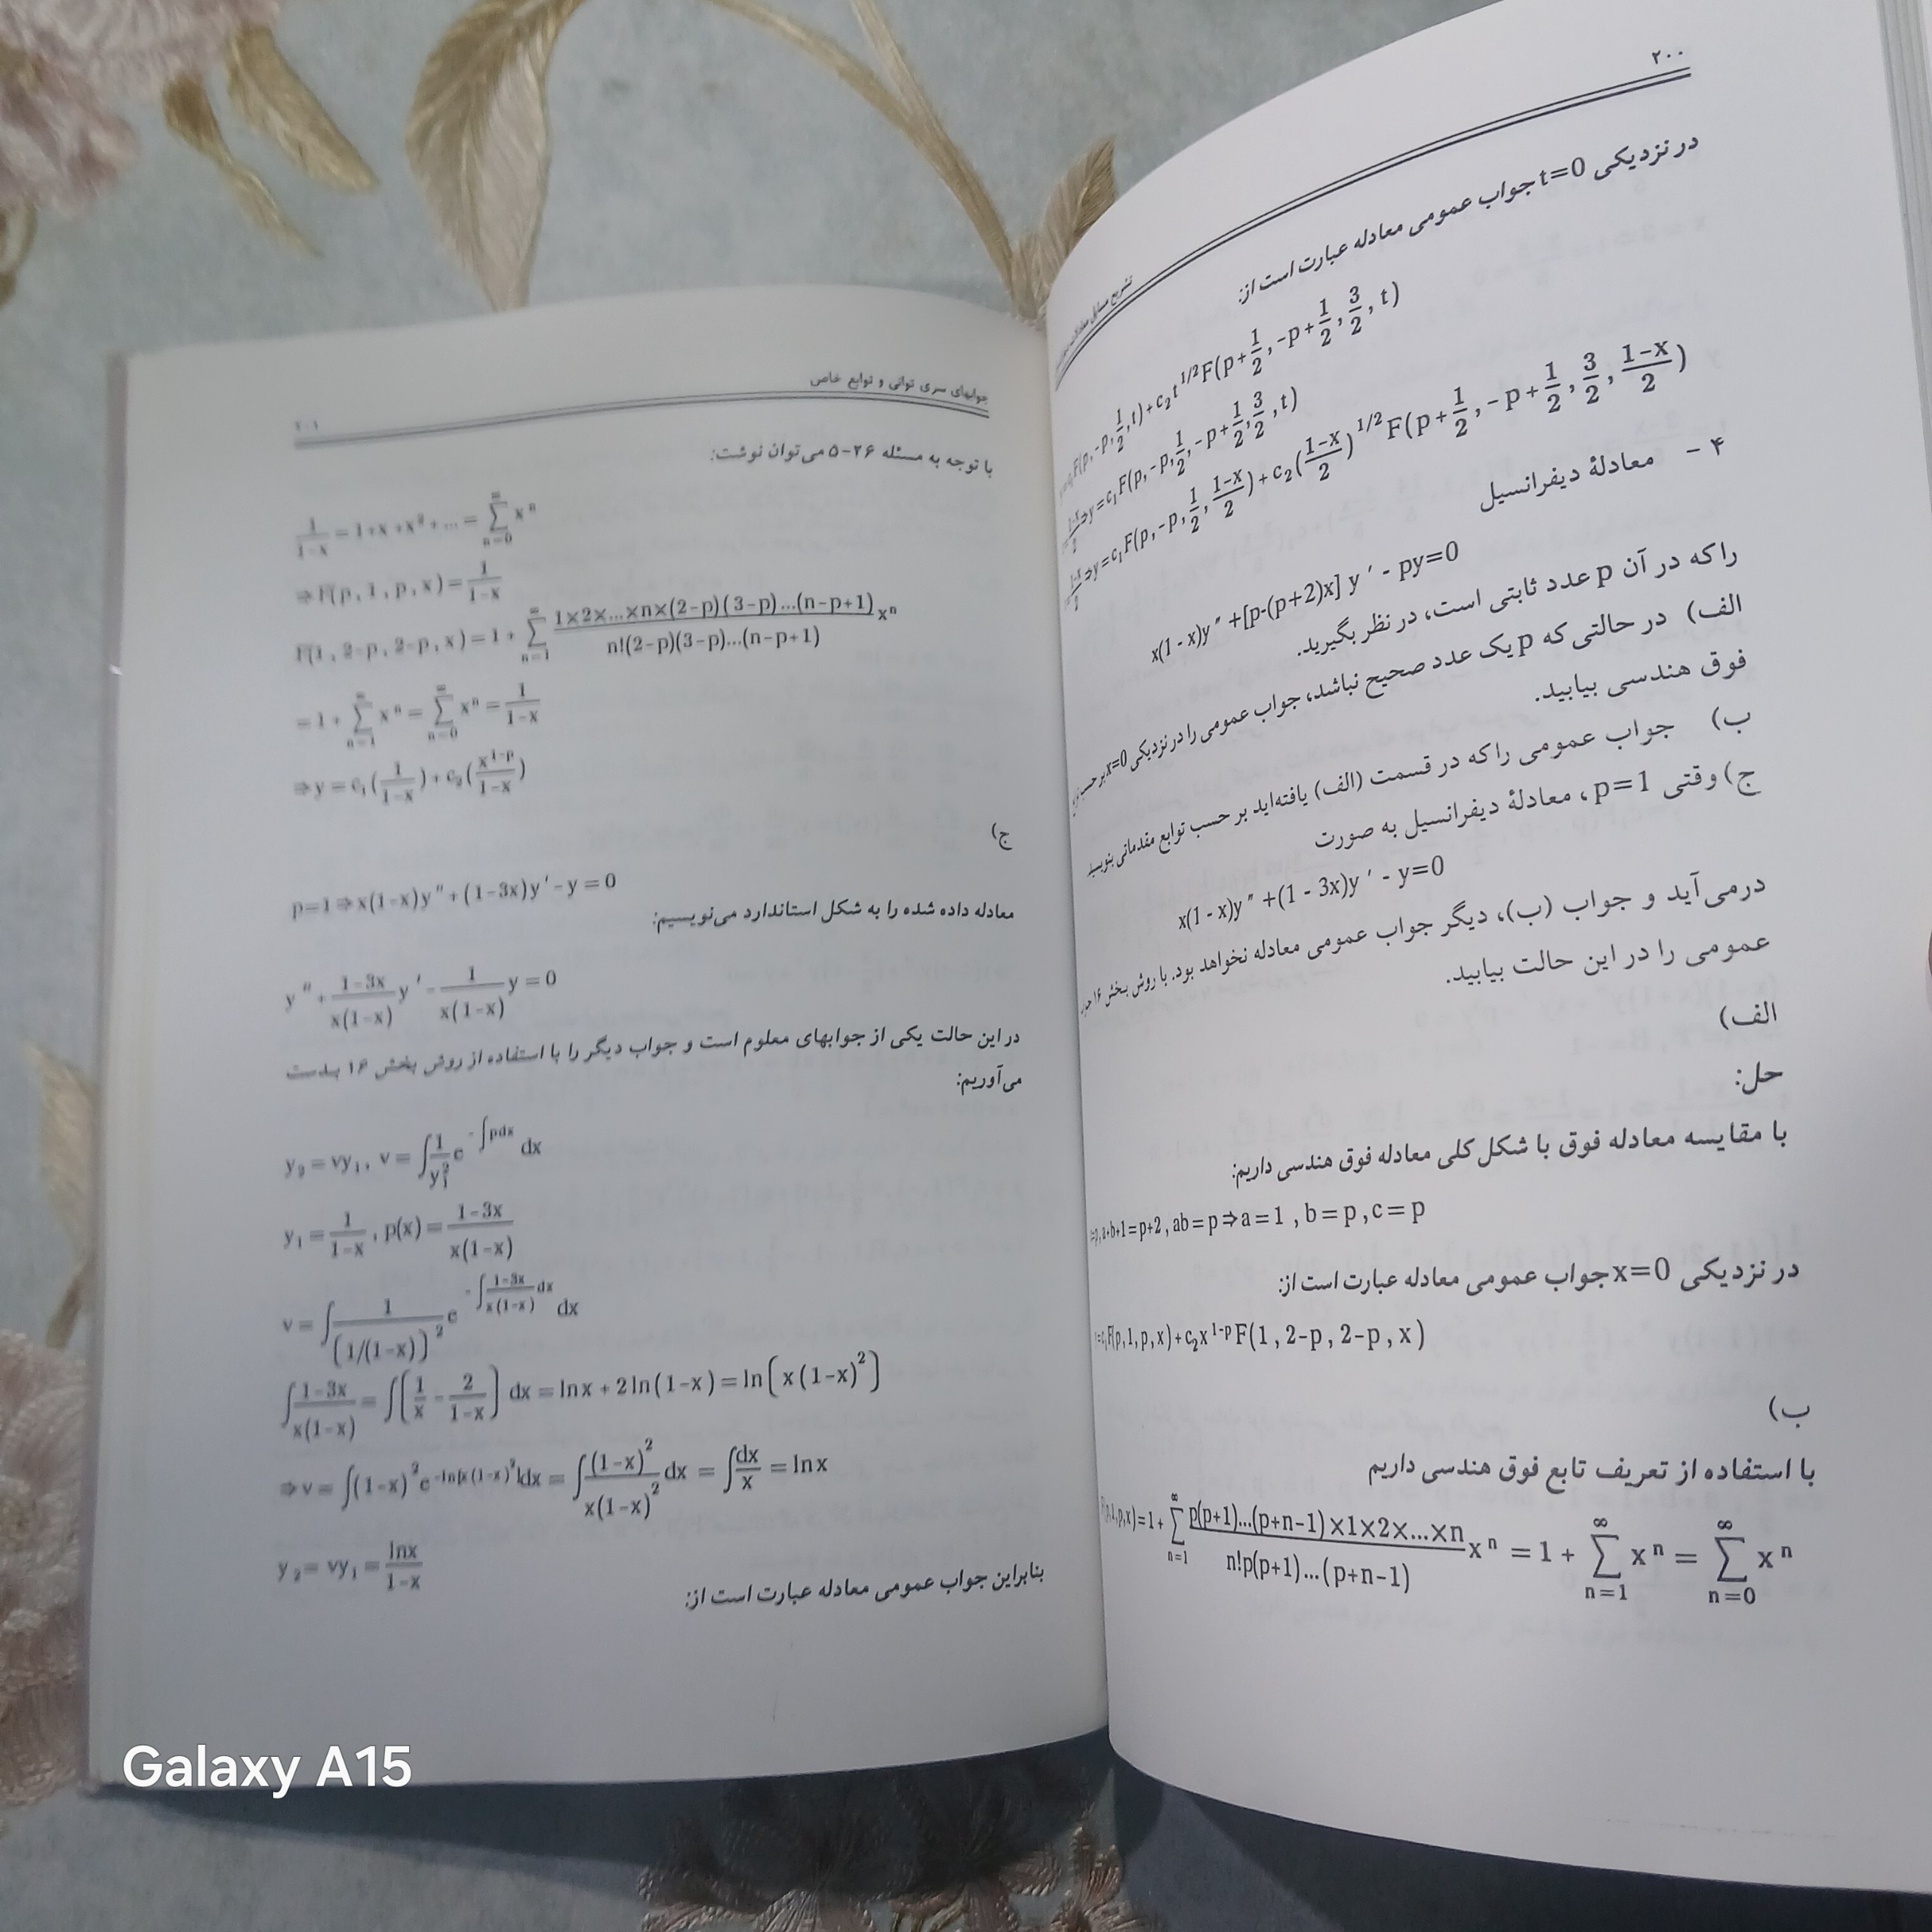 ۲۰۰
در نزدیکی t=0 جواب عمومی معادله عبارت است از:
F(p,-p,1/2,t)+c₂t^1/2 F(p+1/2,-p+1/2,3/2,t)
⇒y=c₁F(p,-p,1/2,-p+1/2,3/2,t)
1-x/2⇒y=c₁F(p,-p,1/2,1-x/2)+c₂(1-x/2)^1/2 F(p+1/2,-p+1/2,3/2,1-x/2)
۴ - معادلهٔ دیفرانسیل
x(1-x)y″+[p-(p+2)x] y′ - py=0
را که در آن p عدد ثابتی است، در نظر بگیرید.
الف) در حالتی که p یک عدد صحیح نباشد، جواب عمومی را در نزدیکی x=0 بر حسب
فوق هندسی بیابید.
ب) جواب عمومی را که در قسمت (الف) یافته‌اید بر حسب توابع مقدماتی بنویسید
ج) وقتی p=1، معادلهٔ دیفرانسیل به صورت
x(1-x)y″+(1-3x)y′ - y=0
درمی‌آید و جواب (ب)، دیگر جواب عمومی معادله نخواهد بود. با روش بخش ۱۶
عمومی را در این حالت بیابید.
الف)
حل:
با مقایسه معادله فوق با شکل کلی معادله فوق هندسی داریم:
a+b+1=p+2 , ab=p⇒a=1 , b=p , c=p
در نزدیکی x=0 جواب عمومی معادله عبارت است از:
F(p,1,p,x)+c₂x^1-p F(1,2-p,2-p,x)
ب)
با استفاده از تعریف تابع فوق هندسی داریم
F(p,1,p,x)=1+∑_{n=1}^∞ p(p+1)...(p+n-1)×1×2×...×n / n!p(p+1)...(p+n-1) xⁿ =1+∑_{n=1}^∞ xⁿ=∑_{n=0}^∞ xⁿ
جوابهای سری توانی و توابع خاص
۲۰۱
با توجه به مسئله ۲۶-۵ می‌توان نوشت:
1/1-x=1+x+x²+...=∑_{n=0}^∞ xⁿ
⇒F(p,1,p,x)=1/1-x
F(1,2-p,2-p,x)=1+∑_{n=1}^∞ 1×2×...×n×(2-p)(3-p)...(n-p+1) / n!(2-p)(3-p)...(n-p+1) xⁿ
=1+∑_{n=1}^∞ xⁿ=∑_{n=0}^∞ xⁿ=1/1-x
⇒y=c₁(1/1-x)+c₂(x^1-p/1-x)
ج)
p=1⇒x(1-x)y″+(1-3x)y′-y=0
معادله داده شده را به شکل استاندارد می‌نویسیم:
y″+1-3x/x(1-x) y′-1/x(1-x) y=0
در این حالت یکی از جوابهای معلوم است و جواب دیگر را با استفاده از روش بخش ۱۶ بدست
می‌آوریم:
y₂=vy₁, v=∫1/y₁² e^-∫pdx dx
y₁=1/1-x , p(x)=1-3x/x(1-x)
v=∫1/(1/(1-x))² e^-∫1-3x/x(1-x) dx dx
∫1-3x/x(1-x)=∫(1/x-2/1-x) dx=lnx+2ln(1-x)=ln(x(1-x)²)
⇒v=∫(1-x)²e^-ln[x(1-x)²]dx=∫(1-x)²/x(1-x)² dx=∫dx/x=lnx
y₂=vy₁=lnx/1-x
بنابراین جواب عمومی معادله عبارت است از:
Galaxy A15